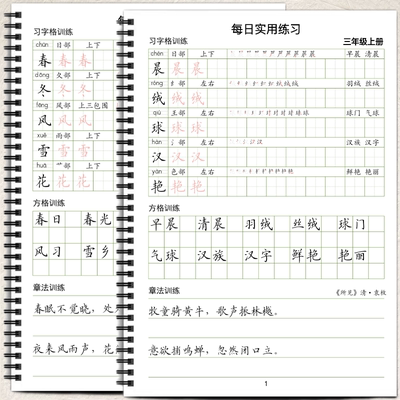 习字格训练
chūn 日部 上下
春 春 春
dōng 夂部 上下
冬 冬 冬
fēng 风部 上三包围
风 风 风
xuě 雨部 上下
雪 雪 雪
huā 艹部 上下
花 花 花
方格训练
春日 春光
风习 雪乡
章法训练
春眠不觉晓，处
夜来风雨声，花
每日实用练习
习字格训练 三年级上册
chén 日部 上下 早晨 清晨
晨 晨 晨
róng 纟部 左右 羽绒 丝绒
绒 绒 绒
qiú 左右 球门 气球
球 球 球
hàn 左右 汉族 汉字
汉 汉 汉
yàn 左右 鲜艳 艳丽
艳 艳 艳
方格训练
早晨 清晨 羽绒 丝绒 球门
气球 汉族 汉字 鲜艳 艳丽
章法训练
《所见》清·袁枚
牧童骑黄牛，歌声振林樾。
意欲捕鸣蝉，忽然闭口立。
1